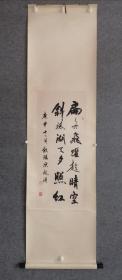 扁舟飛躍趁晴空
斜抹湖天夕照紅
庚申十一月